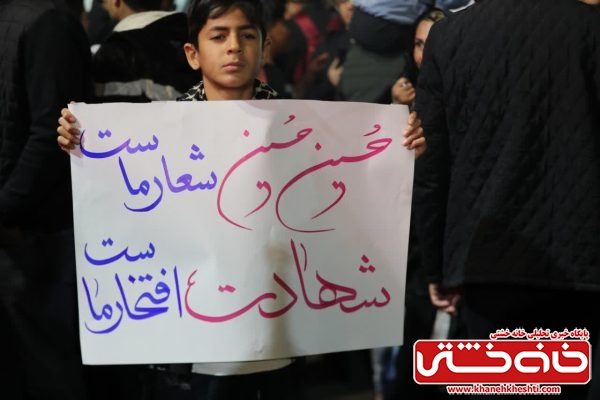 حُسین حُسین شعار ماست
شهادت افتخار ماست
پایگاه خبری تحلیلی خانه خشتی
خانه خشتی
www.khanehkheshti.com